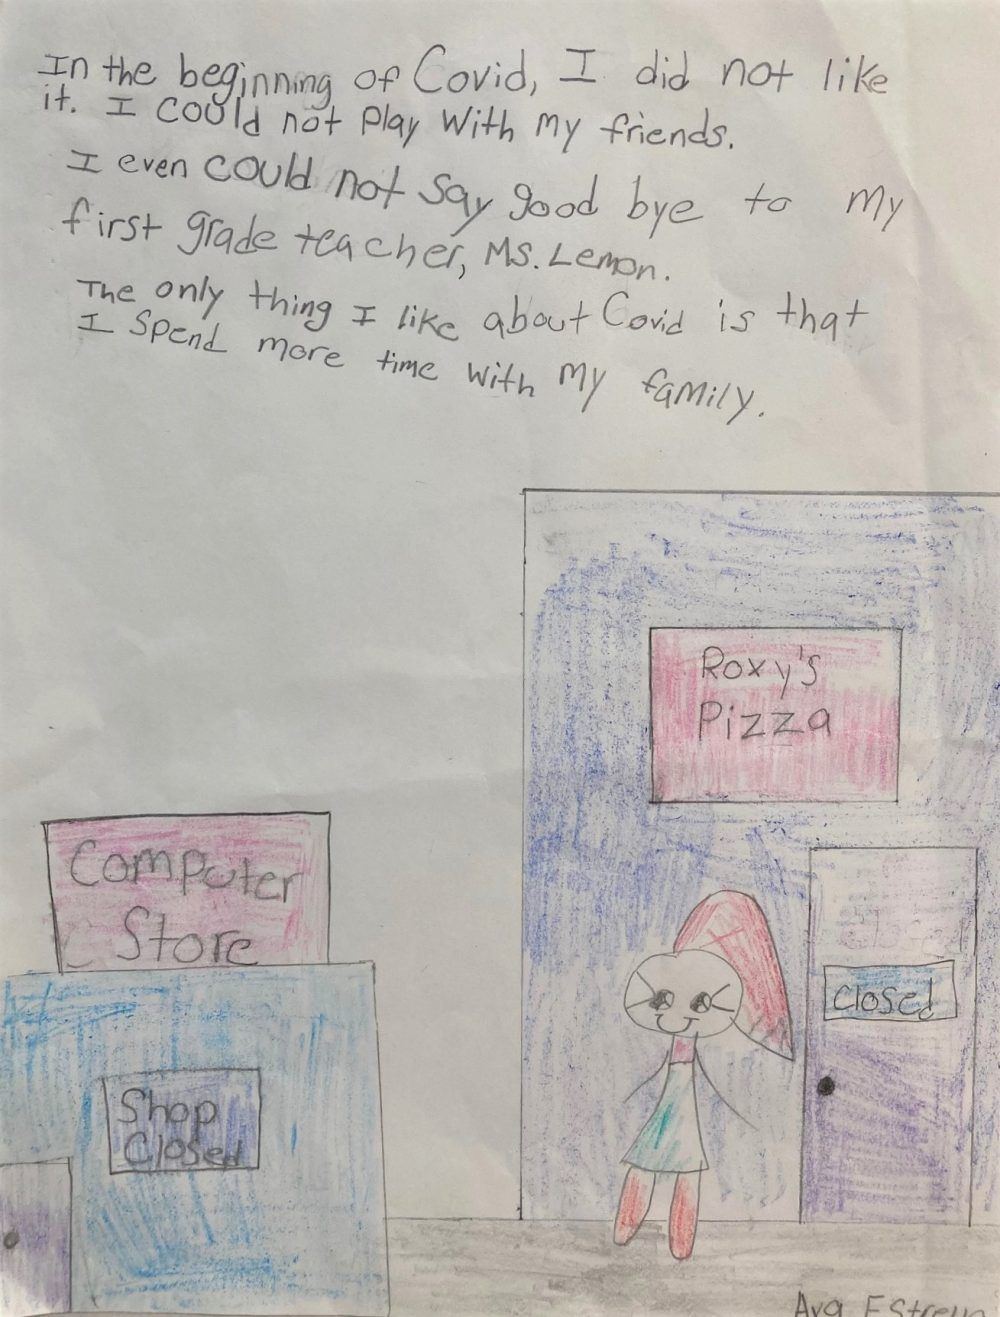 In the beginning of Covid, I did not like
it. I could not play with my friends.
I even could not say good bye to my
first grade teacher, Ms. Lemon.
The only thing I like about Covid is that
I spend more time with my family.
Roxy's
Pizza
Computer
Store
Closed
Shop
Closed
Ava